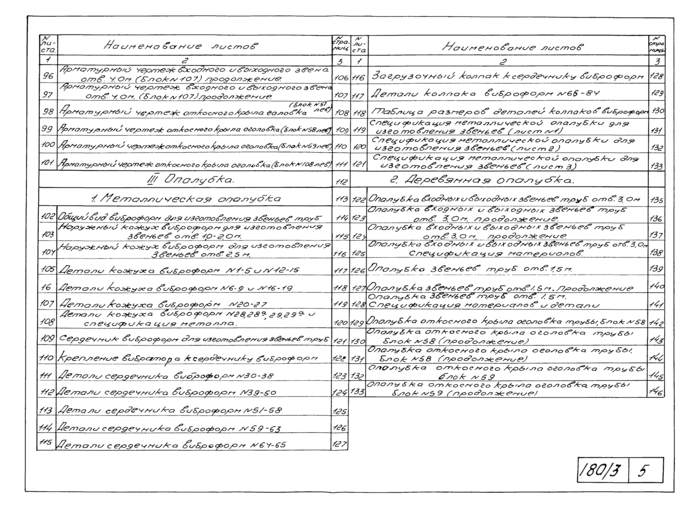 N листа Наименование листов N страницы
1 2 3
96 Арматурный чертеж входного и выходного звена отв. 4,0м (Блок N107) продолжение. 106
97 Арматурный чертеж входного и выходного звена отв. 4,0м. (Блок N107) продолжение. 107
98 Арматурный чертеж откосного крыла оголовка (Блок N57 лев) 108
99 Арматурный чертеж откосного крыла оголовка (Блок N58 лев) 109
100 Арматурный чертеж откосного крыла оголовка (Блок N59 лев) 110
101 Арматурный чертеж откосного крыла оголовка (Блок N108 лев) 111
III Опалубка. 112
1. Металлическая опалубка 113
102 Общий вид виброформ для изготовления звеньев труб 114
103 Наружный кожух виброформ для изготовления звеньев отв. 1,0-2,0м. 115
104 Наружный кожух виброформ для изготовления звеньев отв. 2,5м. 116
105 Детали кожуха виброформ N1-5 и N12-15 117
16 Детали кожуха виброформ N6-9 и N16-19 118
107 Детали кожуха виброформ N20-27 119
108 Детали кожуха виброформ N28,28а,29,29а и спецификация металла. 120
109 Сердечник виброформ для изготовления звеньев труб 121
110 Крепление вибратора к сердечнику виброформ 122
111 Детали сердечника виброформ N30-38 123
112 Детали сердечника виброформ N39-50 124
113 Детали сердечника виброформ N51-58 125
114 Детали сердечника виброформ N59-63 126
115 Детали сердечника виброформ N64-65 127
N листа Наименование листов N страницы
1 2 3
116 Загрузочный колпак к сердечнику виброформ 128
117 Детали колпака виброформ N65-84 129
118 Таблица размеров деталей колпаков виброформ 130
119 Спецификация металлической опалубки для изготовления звеньев (лист N1) 131
100 Спецификация металлической опалубки для изготовления звеньев (лист 2) 132
121 Спецификация металлической опалубки для изготовления звеньев (лист 3) 133
2. Деревянная опалубка.
122 Опалубка входных и выходных звеньев труб отв. 3,0м 135
123 Опалубка входных и выходных звеньев труб отв. 3,0м. продолжение 136
125 Опалубка входных и выходных звеньев труб отв. 3,0м. продолжение 137
125 Опалубка входных и выходных звеньев труб отв. 3,0м Спецификация материалов. 138
126 Опалубка звеньев труб отв. 1,5м. 139
127 Опалубка звеньев труб отв. 1,5м. Продолжение 140
128 Опалубка звеньев труб отв. 1,5м. Спецификация материалов и детали 141
129 Опалубка откосного крыла оголовка трубы, Блок N58 142
130 Опалубка откосного крыла оголовка трубы Блок N58 (продолжение) 143
131 Опалубка откосного крыла оголовка трубы, Блок N58 (продолжение) 144
132 Опалубка откосного крыла оголовка трубы блок N59 145
133 Опалубка откосного крыла оголовка трубы Блок N59 (продолжение) 146
180/3 5